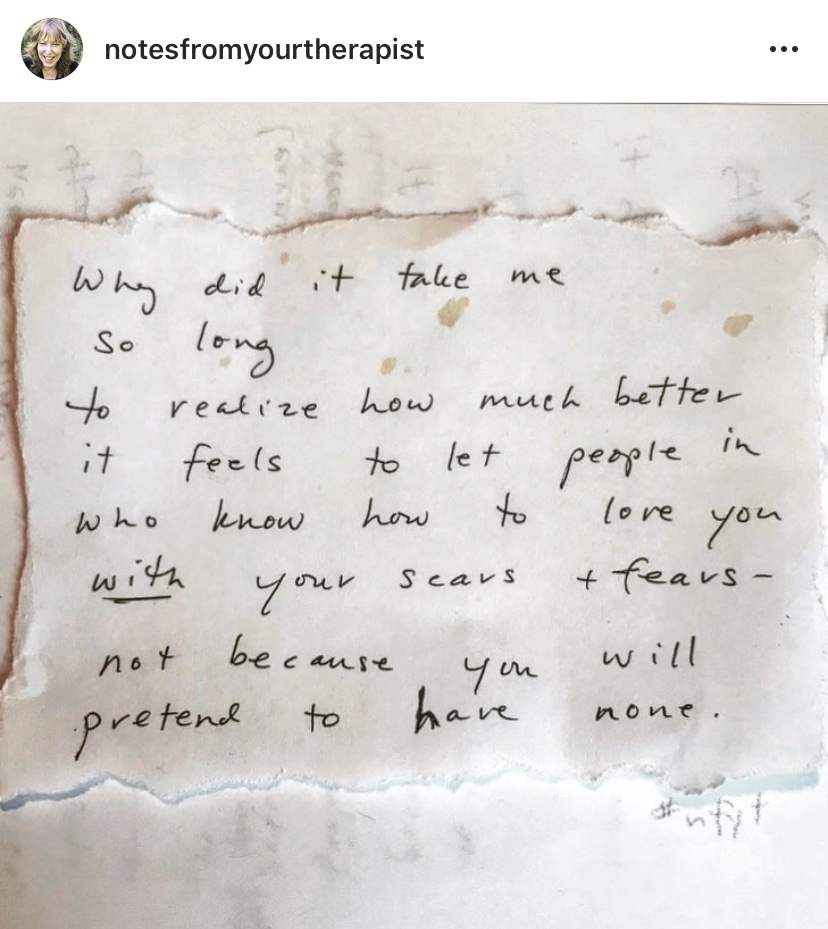 notesfromyourtherapist
Why did it take me
so long
to realize how much better
it feels to let people in
who know how to love you
with your scars + fears-
not because you will
pretend to have none.
#nfyt